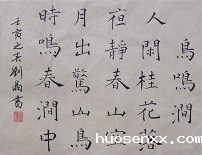 鳥鳴澗
人閑桂花落
夜靜春山空
月出驚山鳥
時鳴春澗中
壬寅之春劉書
husenxx.com